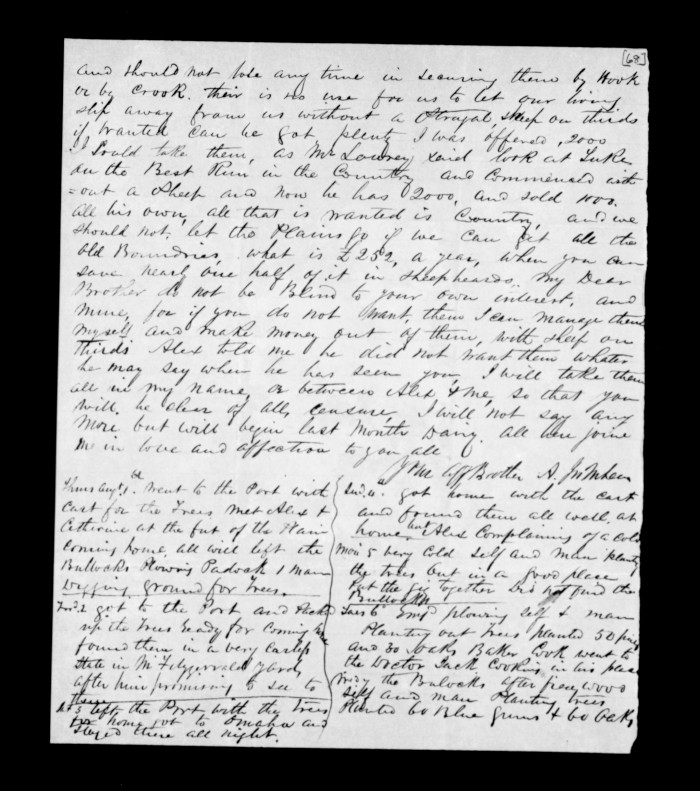 [68]
and should not lose any time in securing them by Hook
or by Crook. their is no use for us to let our living
slip away from us without a Strugal, Sheep on thirds
if wanted can be got plenty I was offered, 2000
I Could take them, as Mr Lowrey said look at Luke
on the Best Run in the Country and Commenced with
=out a Sheep and now he has 2000, and sold 1000.
all his own, all that is wanted is Country, and we
should not let the Plains go if we can get all the
old Boundries, what is £252, a year, when you can
save nearly one half of it in sheepheards. My Dear
Brother do not be Blind to your own interest, and
mine, for if you do not want them I can manage them
myself and make money out of them, with sheep on
thirds Alex told me he did not want them whats
he may say when he has seen you, I will take them
all in my name, or between Alex & me, so that you
will be clear of all, censure, I will not say any
more but will begin last Month Dairy. all here joine
me in love and affection to you all
Aff Brother A.
Thurs Augt 1st Went to the Port with
Cart for the Trees met Alex &
Catherine at the fut of the Plain
coming home, all well left the
Bullocks Plowing Padock 1 man
Digging ground for Trees.
Frid 2 got to the Port and Packed
up the Trees Ready for Coming
found them in a very Careless
State in Mr Fitzgerrald Yards
after him promising to see to
them
3 left the Port with the Trees
for home got to Omahu and
stayed there all night.
Sund 4 got home with the cart
and found them all well, at
home, but Alex Complaining of a cold
Mon 5 very Cold self and man planting
the trees out in a good place
Put the together Did not find the
Bullocks
Tues 6 plowing self & man
Planting out Trees planted 50 pines
and 30 oaks Baker Cook went to
the Doctor Jack Cooking in his place
the Bulocks after fire wood
self and man Planting trees
Planted 60 Blue gums & 60 Oaks